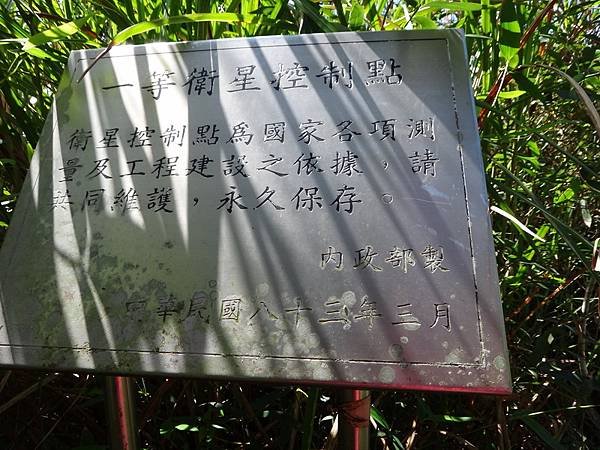 一等衛星控制點
衛星控制點為國家各項測
量及工程建設之依據，請
共同維護，永久保存。
內政部製
中華民國八十三年三月